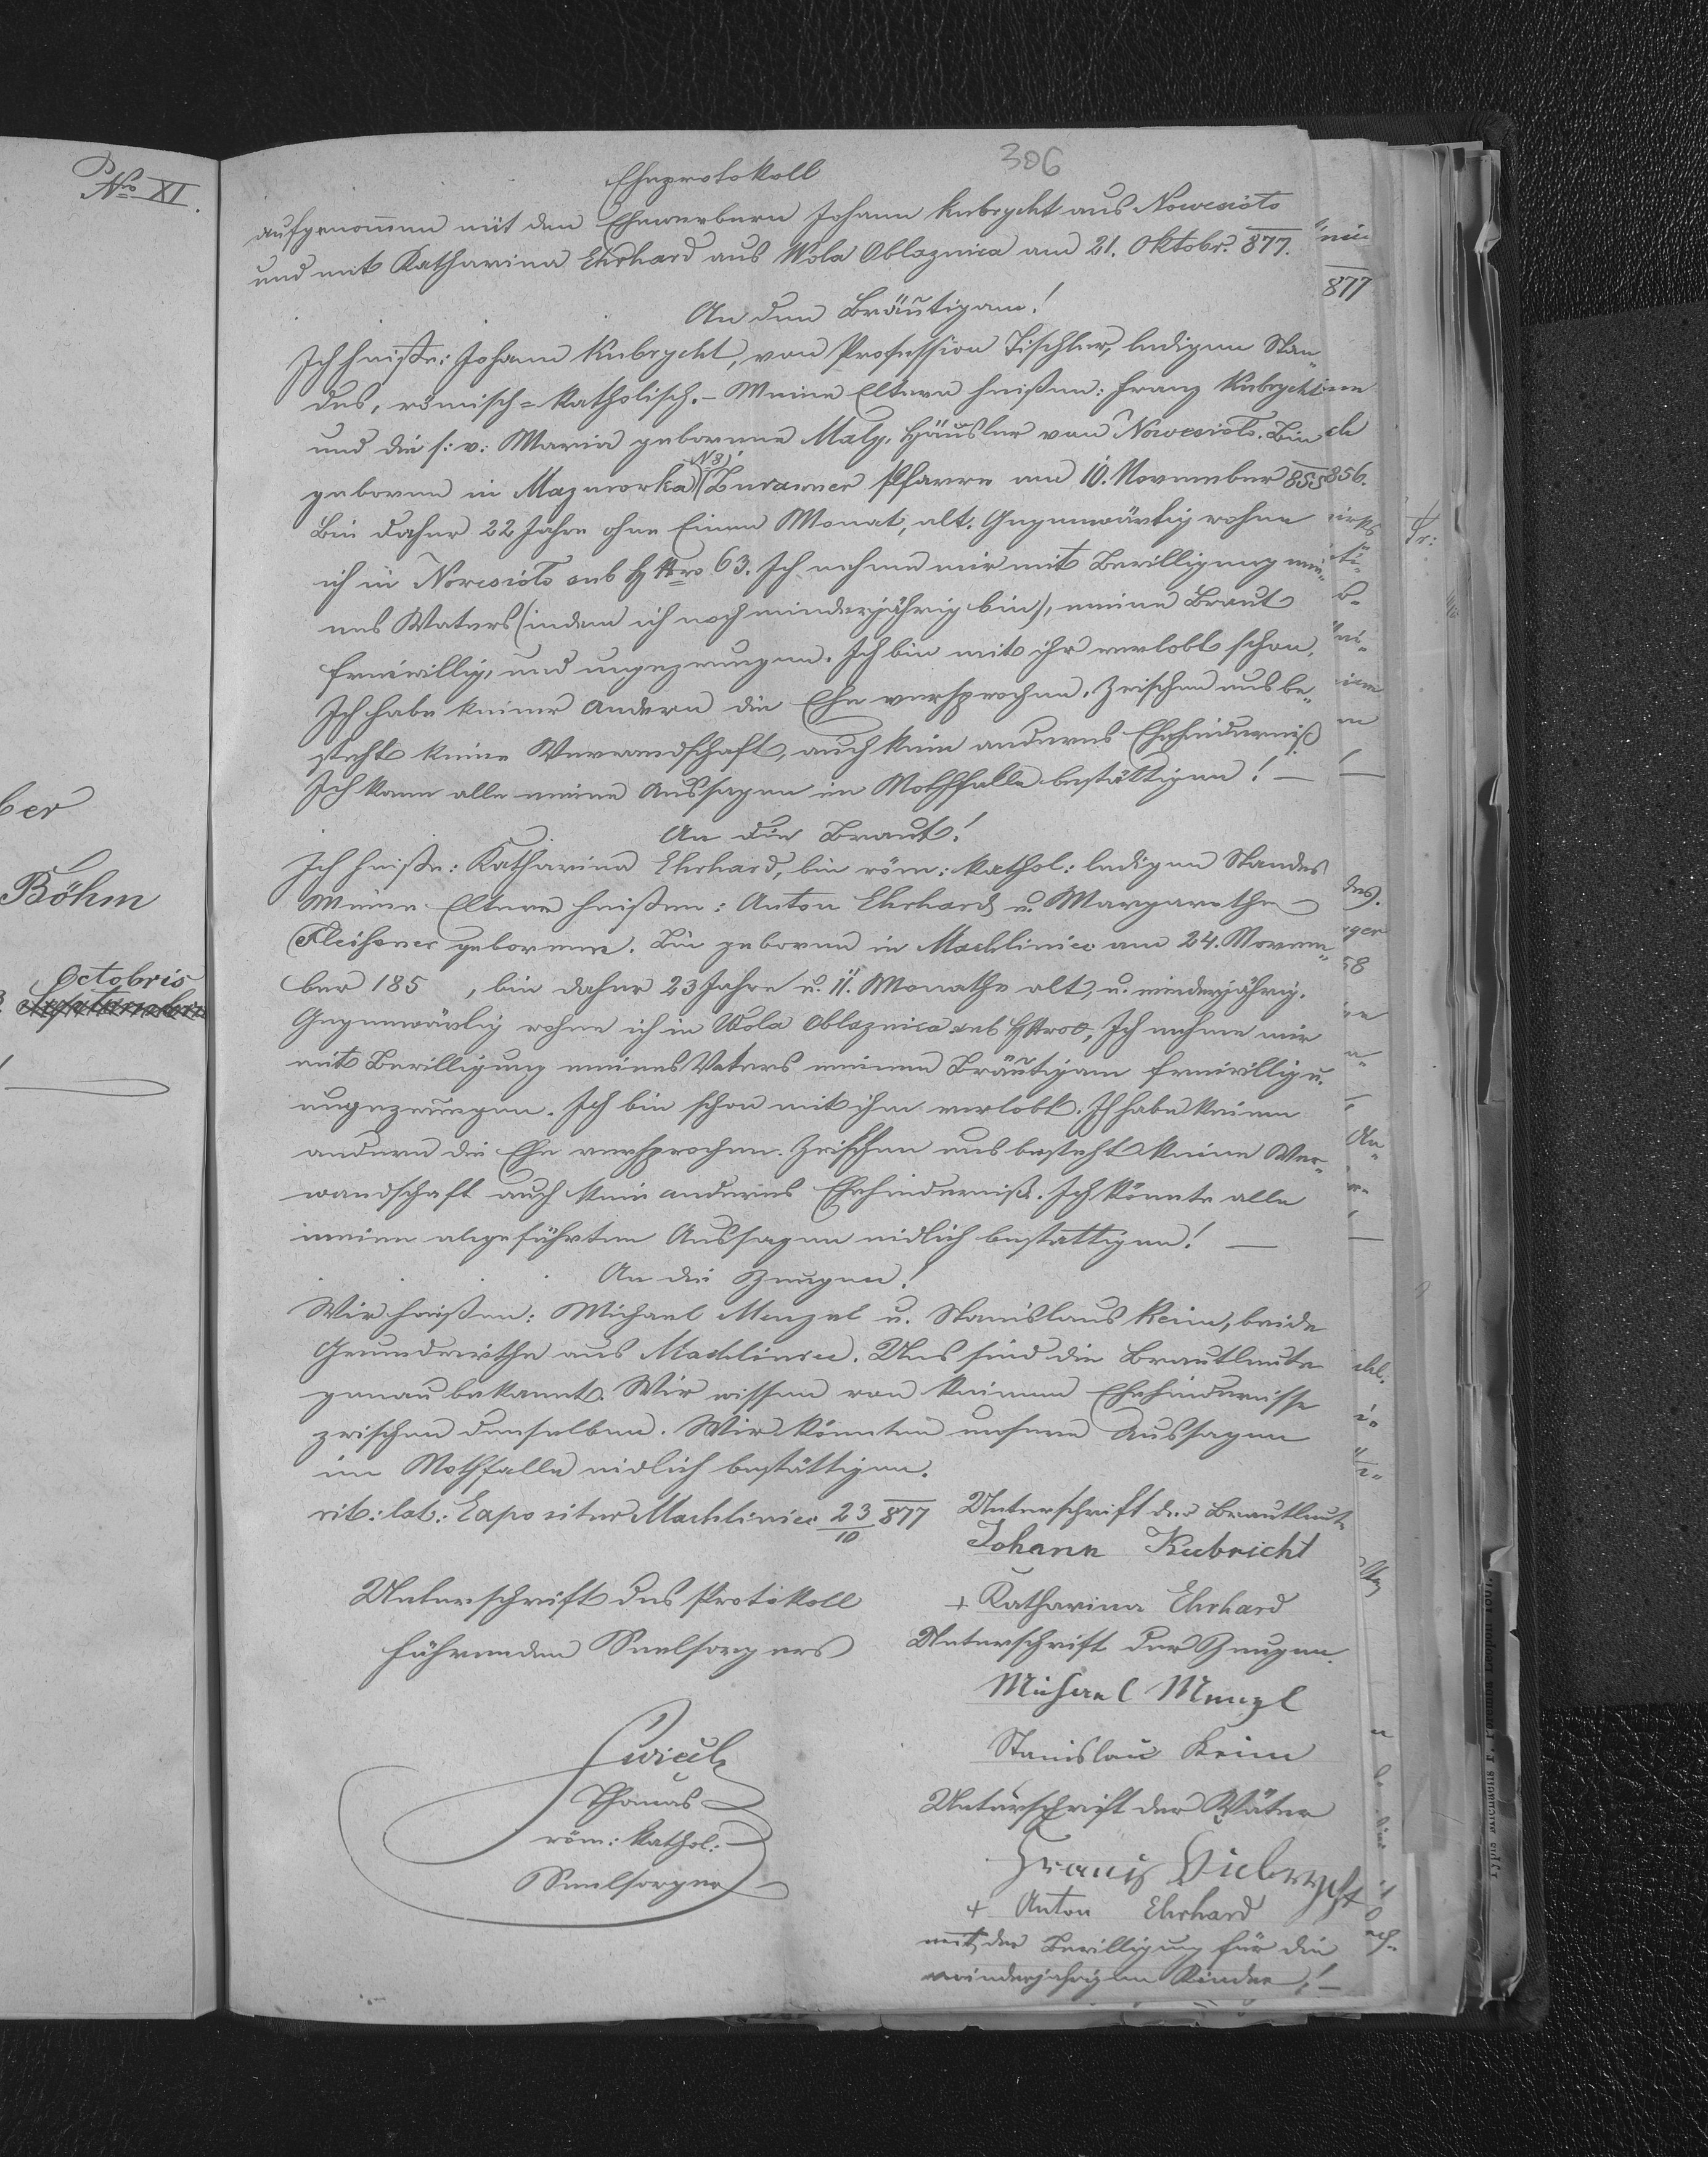 Nro XI.
306
Eheprotokoll
aufgenommen mit den Ehewerbern Johann Kubrycht aus Nowesioto
und mit Katharina Ehrhard aus Wola Oblaznica am 21. Oktobr. 877.
An den Bräutigam!
Ich heiße: Johann Kubrycht, von Profession Tischler, ledigen Stan„
des, römisch=katholisch. – Meine Eltern heißen: Franz Kubrycht
und die s: v: Maria geborene Maly, Häusler von Nowesioto. Bin
geboren in Mazurorka (N 3) Zurawner Pfarre am 10. November 855
Bin daher 22 Jahre ohne Einen Monat, alt. Gegenwärtig wohne
ich in Nowesioto sub H Nro 63. Ich nehme mir mit Bewilligung mei„
nes Vaters (indem ich noch minderjährig bin), meine Braut
freiwillig, und ungezwungen. Ich bin mit ihr verlobt schon.
Ich habe keiner Andern die Ehe versprochen. Zwischen uns be„
steht keine Verwandschaft, auch kein anderes Ehehinderniß
Ich kann alle meine Aussagen im Nothfalle bestättigen! —
An die Braut!
Ich heiße: Katharina Ehrhard, bin röm: kathol: ledigen Standes
Meine Eltern heißen: Anton Ehrhard u. Margarethe
Fleißner geborene. Bin geboren in Machliniec am 24. Novem„
ber 185 , bin daher 23 Jahre u. 11. Monathe alt, u. minderjährig.
Gegenwärtig wohne ich in Wola Oblaznica sub HNro Ich nehme mir
mit Bewilligung meines Vaters meinen Bräutigam freiwillig u.
ungezwungen. Ich bin schon mit ihm verlobt. Ich habe keinem
andern die Ehe versprochen. Zwischen uns besteht keine Ver„
wandschaft auch kein anderes Ehehinderniß. Ich könnte alle
meine abgeführten Aussagen eidlich bestattigen! —
An die Zeugen!
Wir heißen: Michael Menzel u. Stanislaus Keim, beide
Grundwirthe aus Machliniec. Uns sind die Brautleute
genau bekannt. Wir wissen von keinem Ehehindernisse
zwischen denselben. Wir könnten unsere Aussagen
im Nothfalle eidlich bestättigen.
rit: lat: Expositur Machliniec 23/10 877
Unterschrift der Brautleute
Johann Kubricht
+ Katharina Ehrhard
Unterschrift des Protokoll
führenden Seelsorgers
Unterschrift der Zeugen.
Michael Menzl
Stanislaus Keim
Thomas
röm: kathol:
Seelsorger
Unterschrift der Väter
Franz Kubrycht
+ Anton Ehrhard
mit der Bewilligung für die
minderjährigen Kinder! —
ber
Böhm
Octobris
877
856.